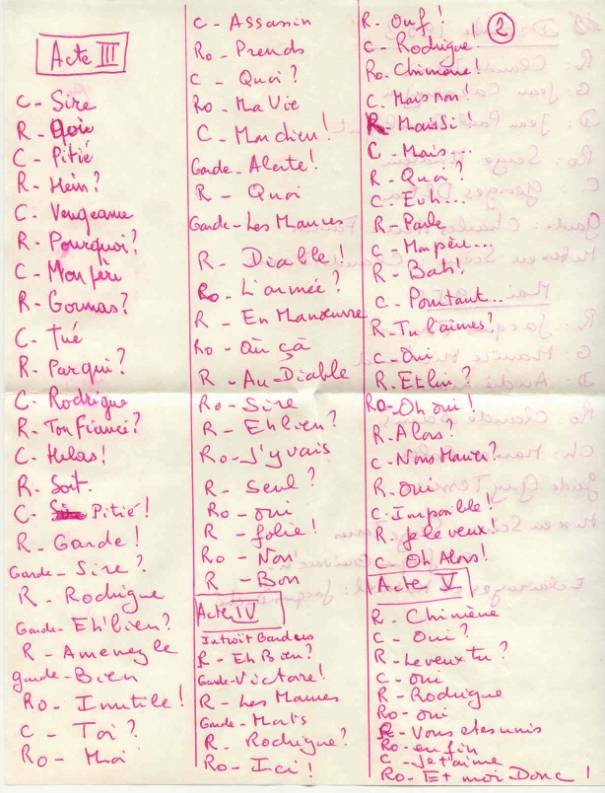 Acte III
C - Sire
R - Quoi
C - Pitié
R - Hein?
C - Vengeance
R - Pourquoi?
C - Mon père
R - Gormas?
C - Tué
R - Par qui?
C - Rodrigue
R - Ton Fiancé?
C - Helas!
R - Soit.
C - Pitié!
R - Garde!
Garde - Sire?
R - Rodrigue
Garde - Eh! bien?
R - Amenez le
garde - Bien
Ro - Inutile!
C - Toi?
Ro - Moi
C - Assassin
Ro - Prends
C - Quoi?
Ro - Ma Vie
C - Mon dieu!
Garde - Alerte!
R - Quoi
Garde - Les Maures
R - Diable!
Ro - L'armée?
R - En Manœuvre
Ro - Où çà
R - Au Diable
Ro - Sire
R - Eh bien?
Ro - J'y vais
R - Seul?
Ro - oui
R - folie!
Ro - Non
R - Bon
Acte IV
Introit Gardess
R - Eh Bien?
Garde - Victoire!
R - Les Maures
Garde - Morts
R - Rodrigue?
Ro - Ici!
2
R - Ouf!
C - Rodrigue!
Ro - Chimène!
C. Mais non!
R - Mais Si!
C - Mais...
R - Quoi?
C - Euh...
R - Parle
C - Mon père...
R - Bah!
C - Pourtant...
R - Tu l'aimes?
C - Oui
R. Et lui?
RO - Oh oui!
R. Alors?
C - Nous Marier?
R. oui
C. Impossible!
R. Je le veux!
C - Oh Alors!
Acte V
R - Chimène
C - Oui?
R - Le veux tu?
C - oui
R - Rodrigue
Ro - oui
R - Vous etes unis
Ro - en fin
C - Je t'aime
Ro - Et moi Donc!